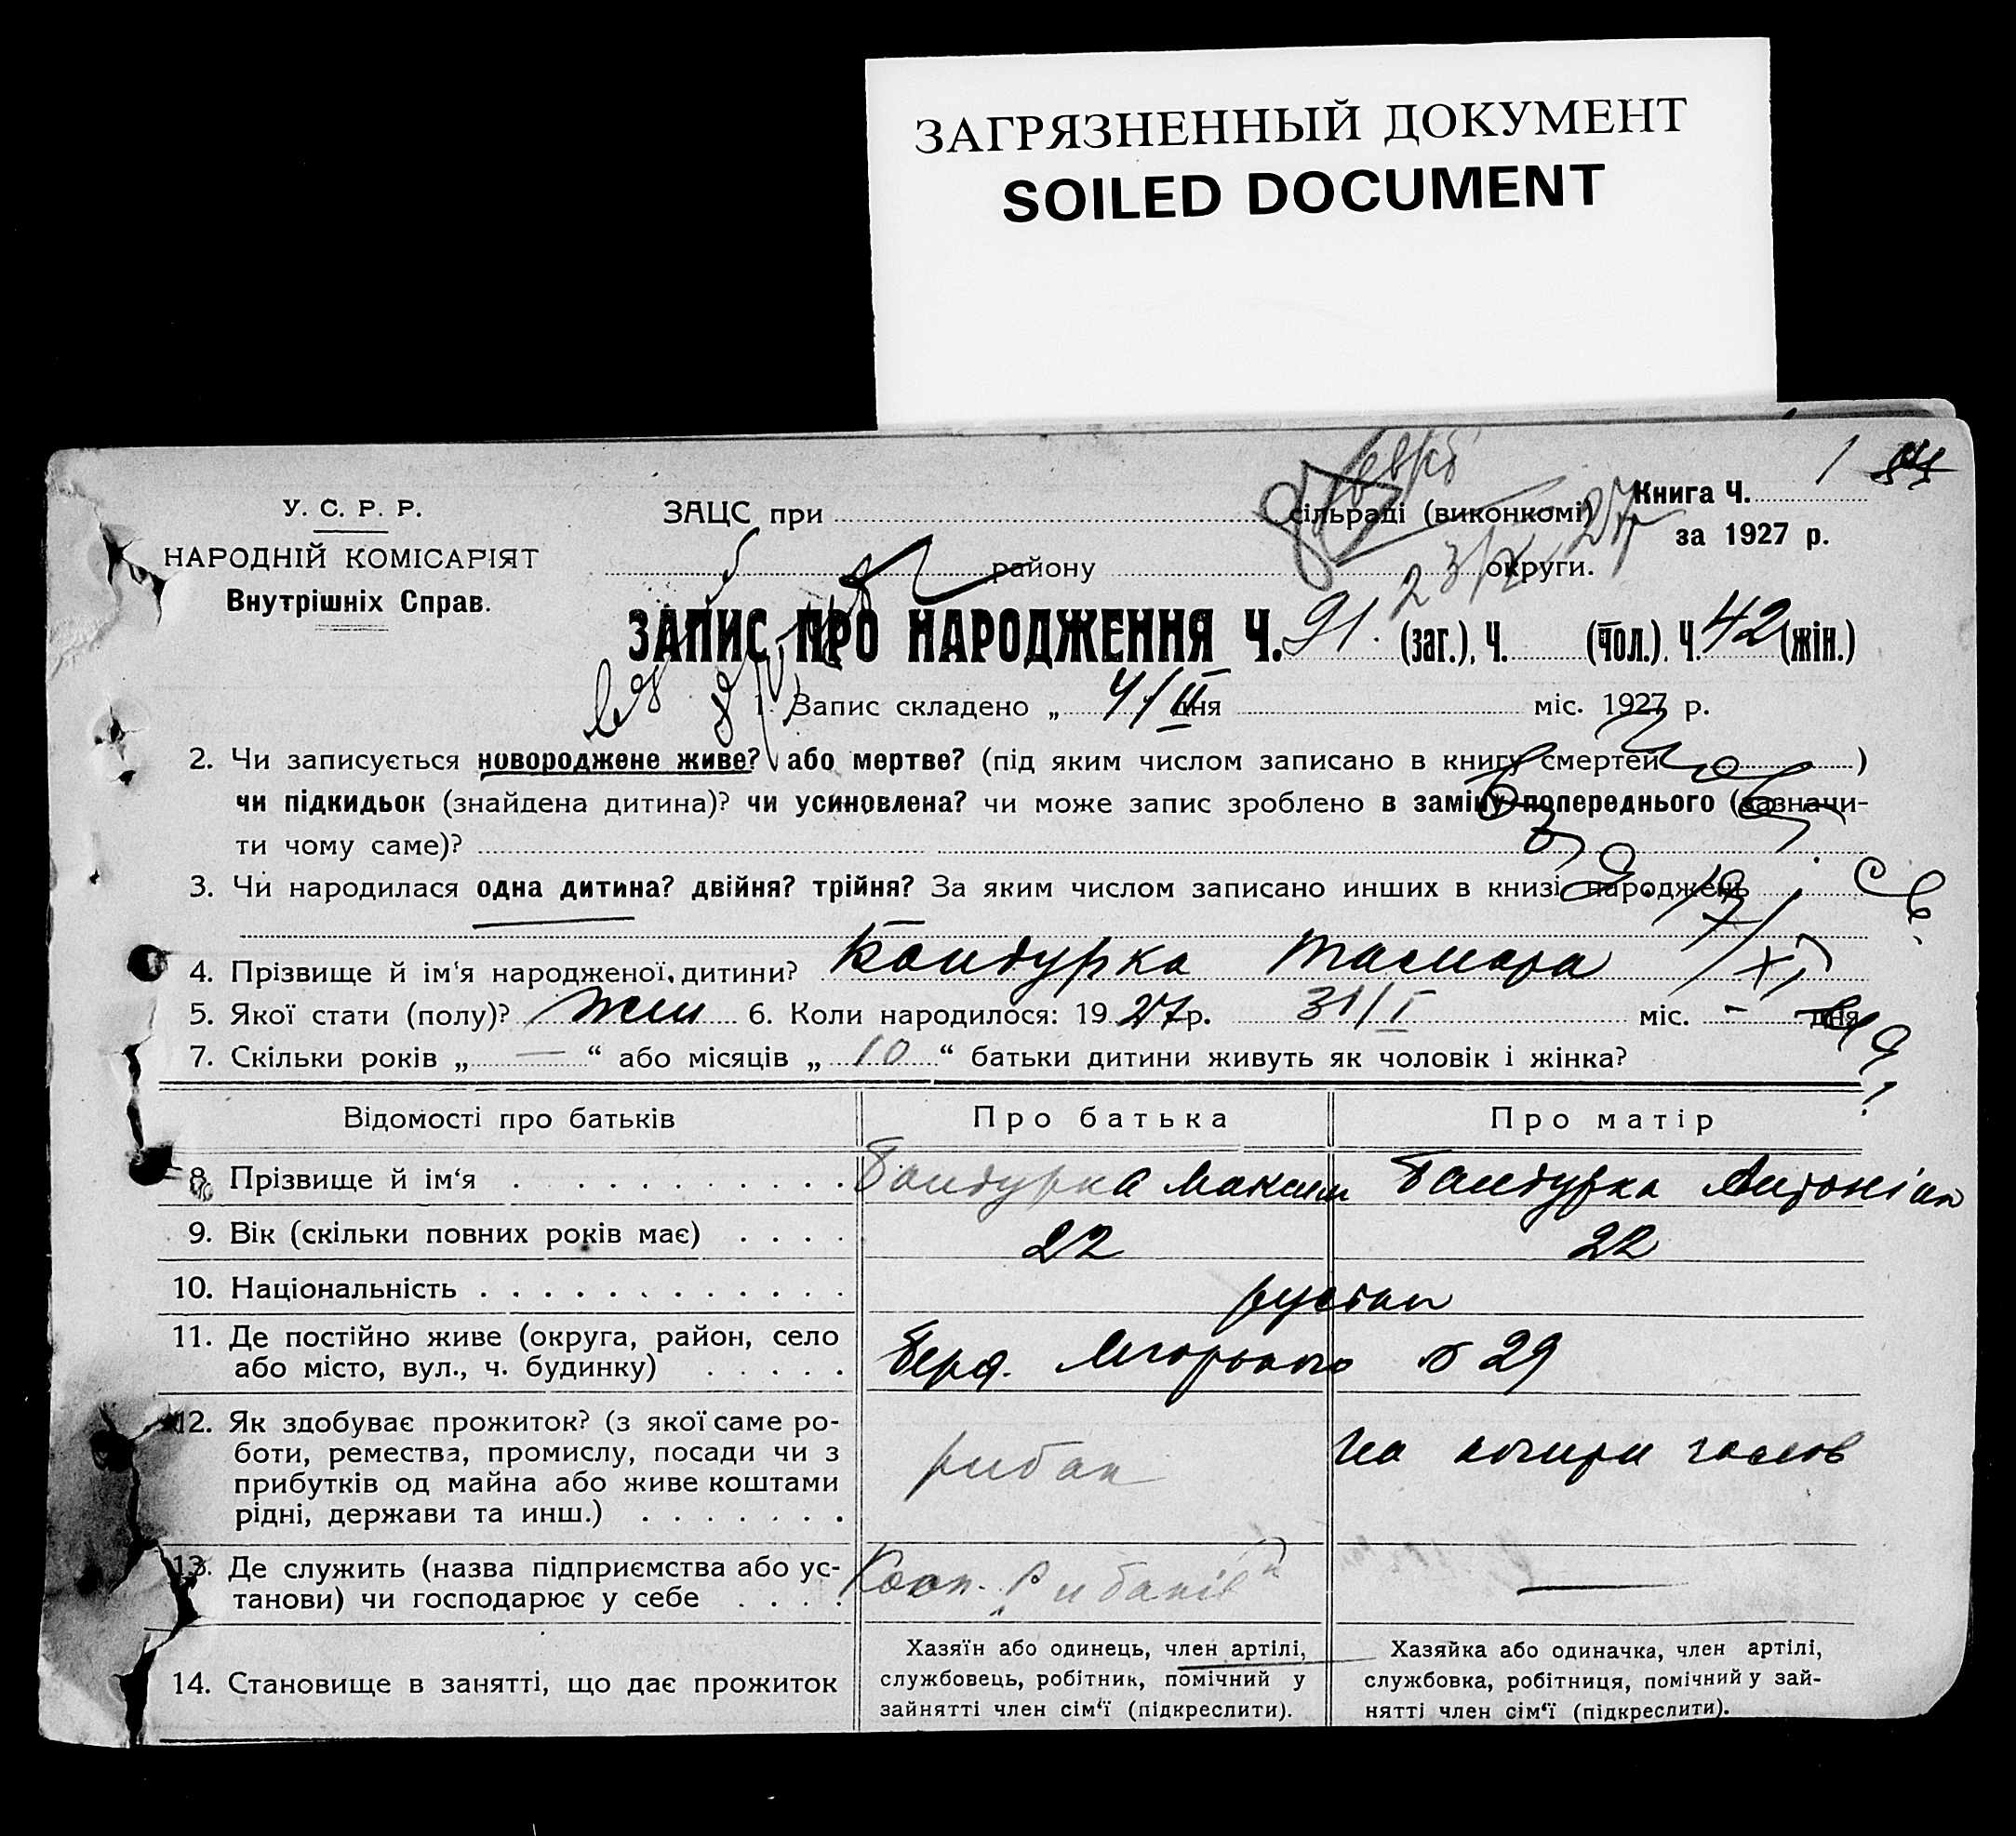 ЗАГРЯЗНЕННЫЙ ДОКУМЕНТ
SOILED DOCUMENT
У. С. Р. Р.
НАРОДНІЙ КОМІСАРІЯТ
Внутрішніх Справ.
ЗАЦС при сільраді (виконкомі)
району округи.
Книга Ч. 1
за 1927 р.
23/X 27
ЗАПИС ПРО НАРОДЖЕННЯ Ч. 91. (заг.), Ч. (чол.), Ч. 42 (жін.)
1. Запис складено „ 4/II дня міс. 1927 р.
2. Чи записується новороджене живе? або мертве? (під яким числом записано в книгу смертей )
чи підкидьок (знайдена дитина)? чи усиновлена? чи може запис зроблено в заміну попереднього (зазначи-
ти чому саме)?
3. Чи народилася одна дитина? двійня? трійня? За яким числом записано инших в книзі народжень
4. Прізвище й ім'я народженої дитини? Бандурка Тамара
5. Якої стати (полу)? жін 6. Коли народилося: 1927 р. 31/I міс. - дня
7. Скільки років „ — “ або місяців „ 10 “ батьки дитини живуть як чоловік і жінка?
Відомості про батьків Про батька Про матір
8. Прізвище й ім'я Бандурка Максим Бандурка Антоніна
9. Вік (скільки повних років має) 22 22
10. Національність
11. Де постійно живе (округа, район, село
або місто, вул., ч. будинку)
Берд. № 29
12. Як здобуває прожиток? (з якої саме ро-
боти, ремества, промислу, посади чи з
прибутків од майна або живе коштами
рідні, держави та инш.)
рибак
13. Де служить (назва підприємства або ус-
танови) чи господарює у себе
Кооп. Рибаків —
14. Становище в занятті, що дає прожиток
Хазяїн або одинець, член артілі,
службовець, робітник, помічний у
зайнятті член сім'ї (підкреслити).
Хазяйка або одиначка, член артілі,
службовка, робітниця, помічний у зай-
нятті член сім'ї (підкреслити).